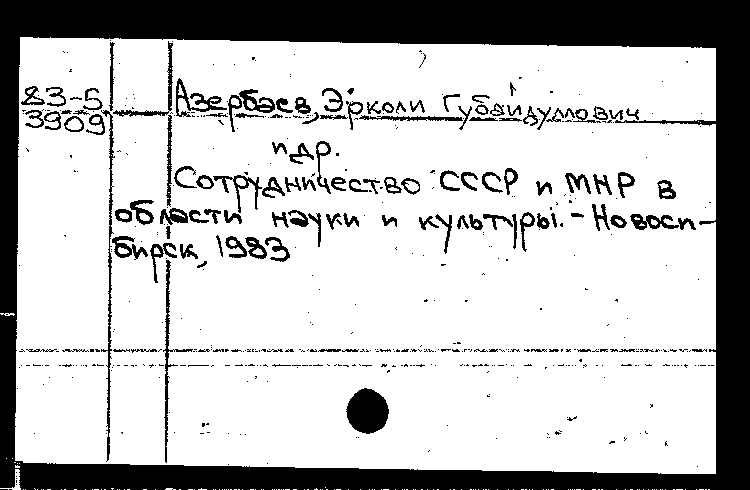 83-5
3909
Азербаев, Эрколи Губайдуллович
и др.
Сотрудничество СССР и МНР в
области науки и культуры. - Новоси-
бирск, 1983